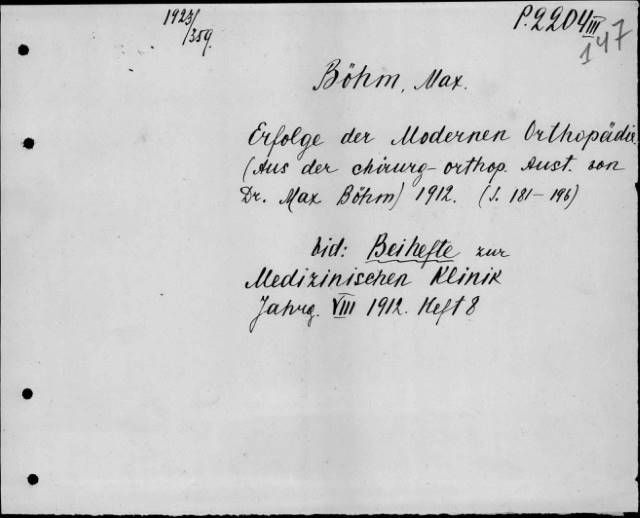 1923/359.
P.2204III
147
Böhm, Max.
Erfolge der Modernen Orthopädie
(Aus der chirurg-orthop. Anst. von
Dr. Max Böhm) 1912. (S. 181-196)
vid: Beihefte zur
Medizinischen Klinik
Jahrg. VIII 1912. Heft 8